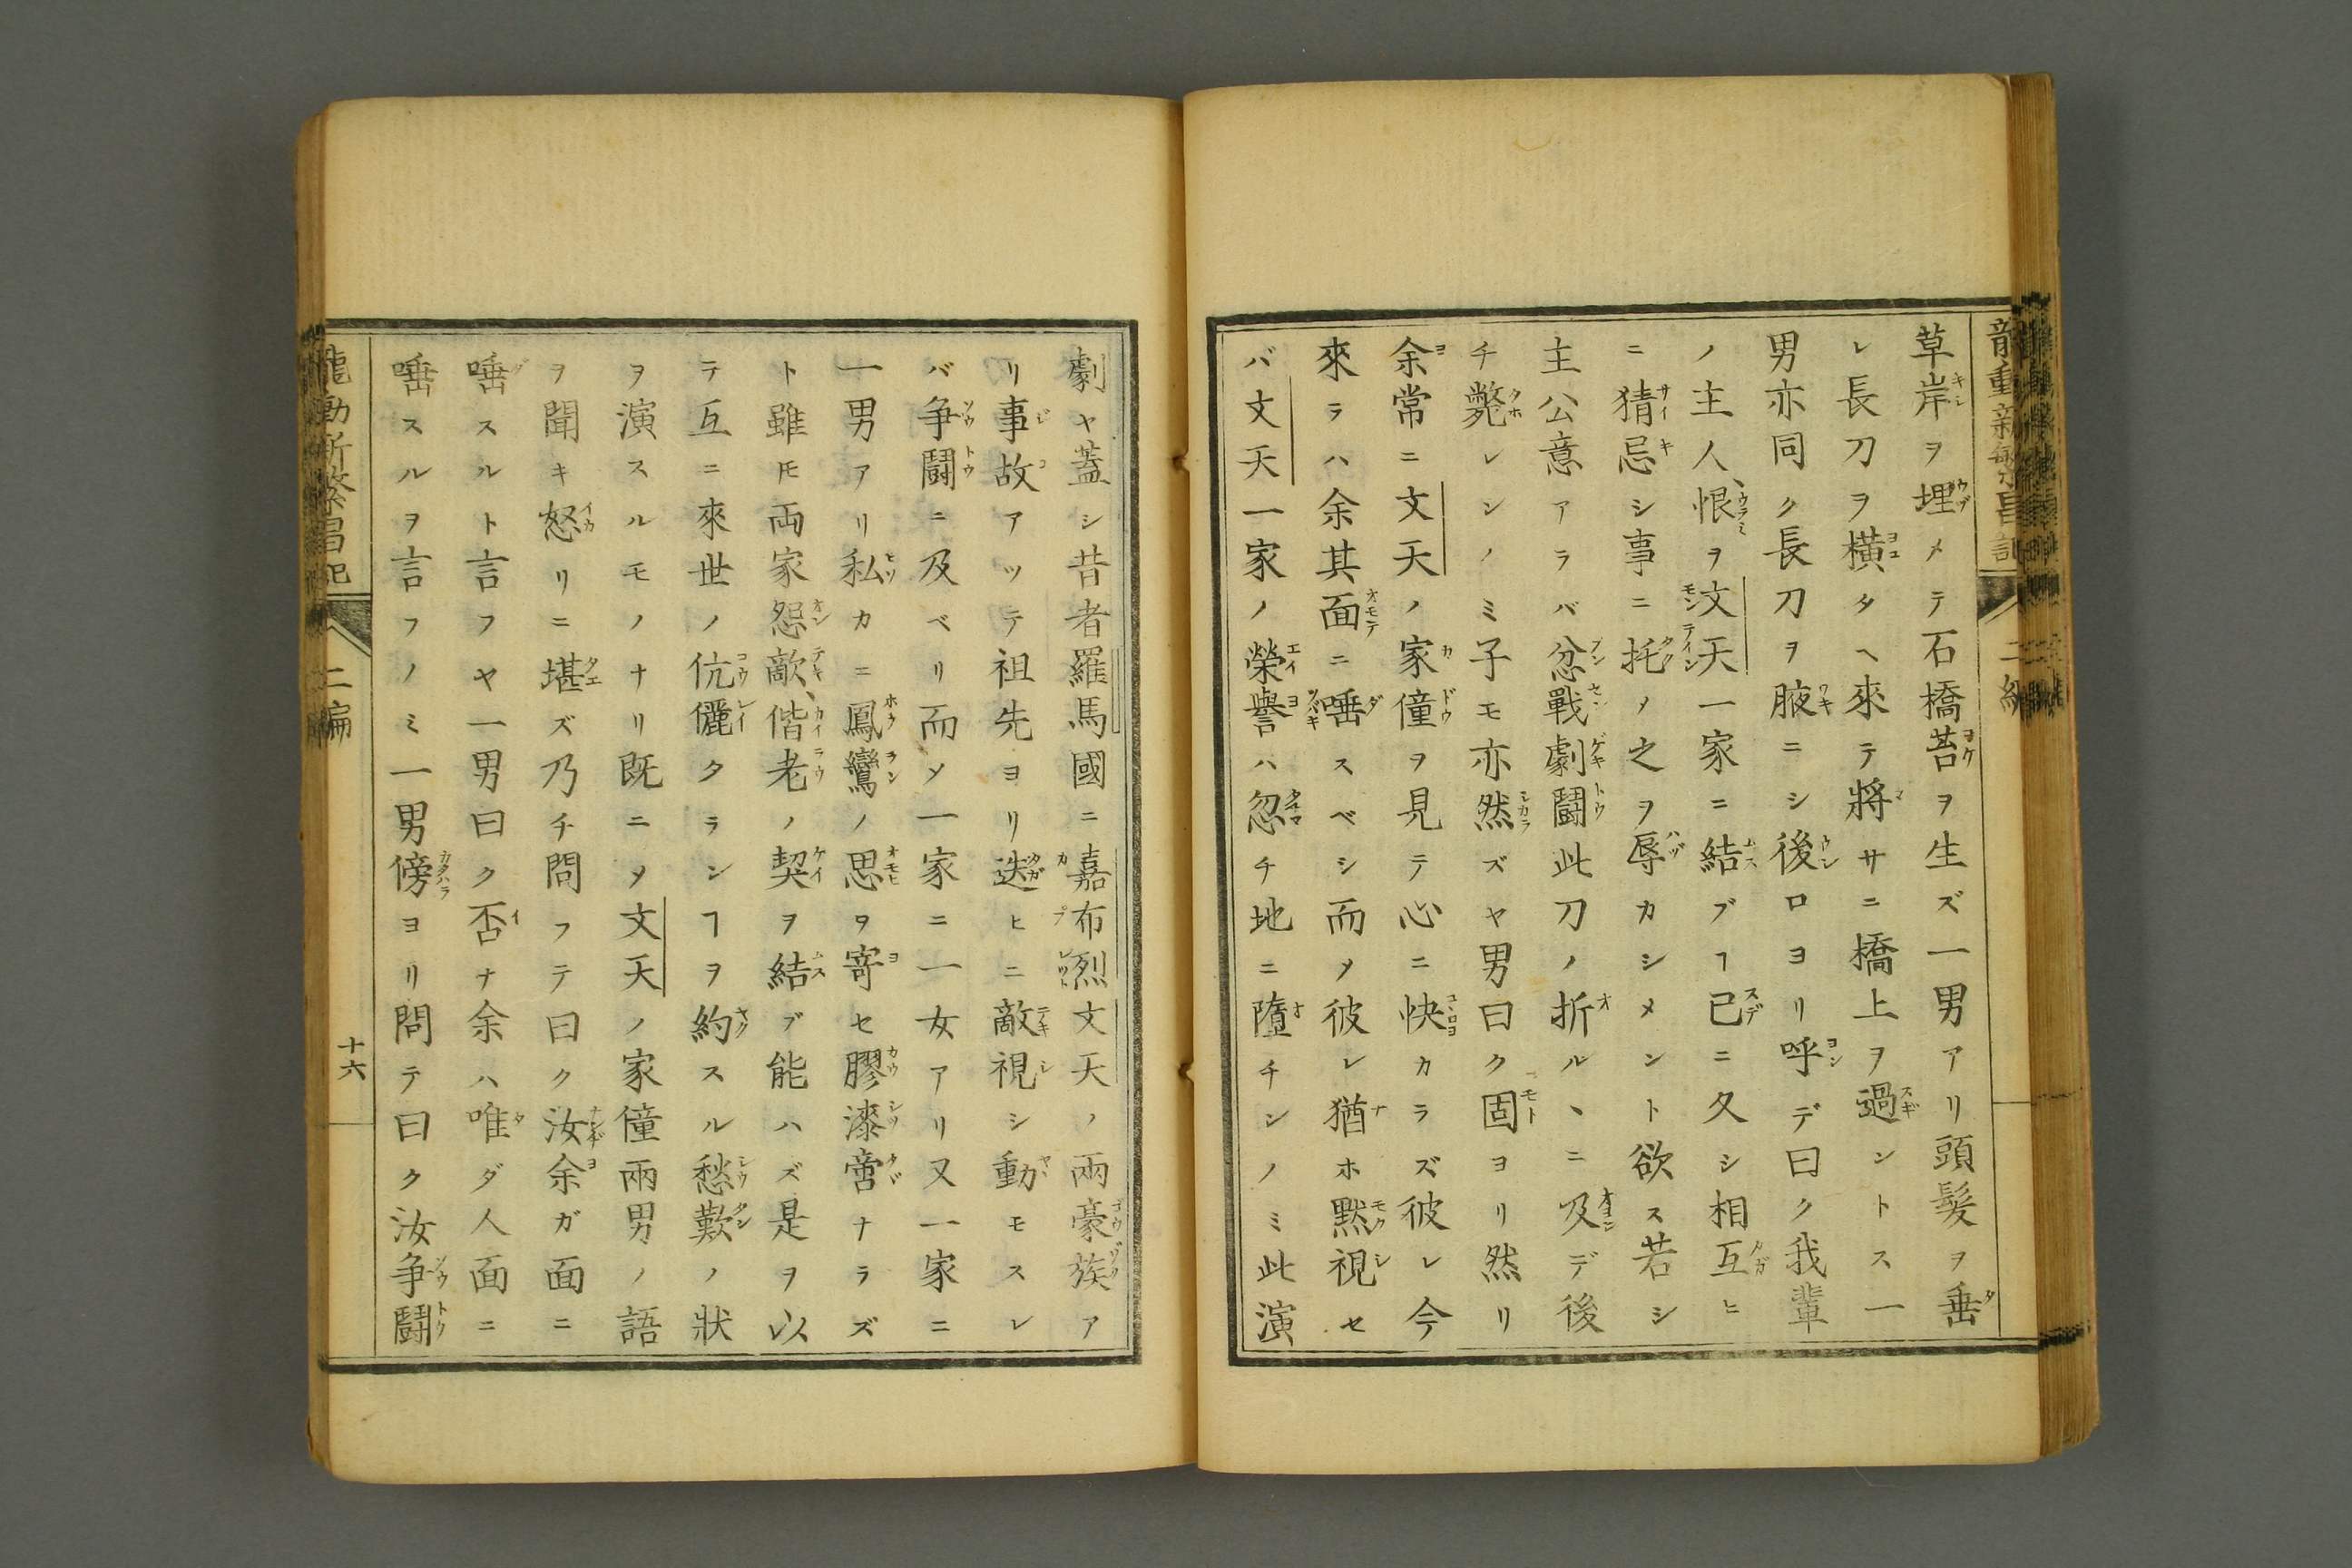 草岸ヲ埋メテ石橋苔ヲ生ズ一男アリ頭髮ヲ垂
レ長刀ヲ橫タヘ來テ將サニ橋上ヲ過ントス一
男亦同ク長刀ヲ腋ニシ後ロヨリ呼デ曰ク我輩
ノ主人、恨ヲ文天一家ニ結ブヿ已ニ久シ相互ヒ
ニ猜忌シ事ニ托〆之ヲ辱カシメント欲ス若シ
主公意アラバ忿戰劇鬪此刀ノ折ルヽニ及デ後
チ斃レンノミ子モ亦然ズヤ男曰ク固ヨリ然リ
余常ニ文天ノ家僮ヲ見テ心ニ快カラズ彼レ今
來ラハ余其面ニ唾スベシ而〆彼レ猶ホ默視セ
バ文天一家ノ榮譽ハ忽チ地ニ墮チンノミ此演
劇ヤ蓋シ昔者羅馬國ニ嘉布烈文天ノ兩豪族ア
リ事故アツテ祖先ヨリ迭ヒニ敵視シ動モスレ
バ争鬪ニ及ベリ而〆一家ニ一女アリ又一家ニ
一男アリ私カニ鳳鸞ノ思ヲ寄セ膠漆啻ナラズ
ト雖𪜈両家怨敵、偕老ノ契ヲ結ブ能ハズ是ヲ以
テ互ニ來世ノ伉儷タランヿヲ約スル愁歎ノ狀
ヲ演スルモノナリ既ニ〆文天ノ家僮兩男ノ語
ヲ聞キ怒リニ堪ズ乃チ問フテ曰ク汝余ガ面ニ
唾スルト言フヤ一男曰ク否ナ余ハ唯ダ人面ニ
唾スルヲ言フノミ一男傍ヨリ問テ曰ク汝争鬪
龍動新繁昌記
二編
十六